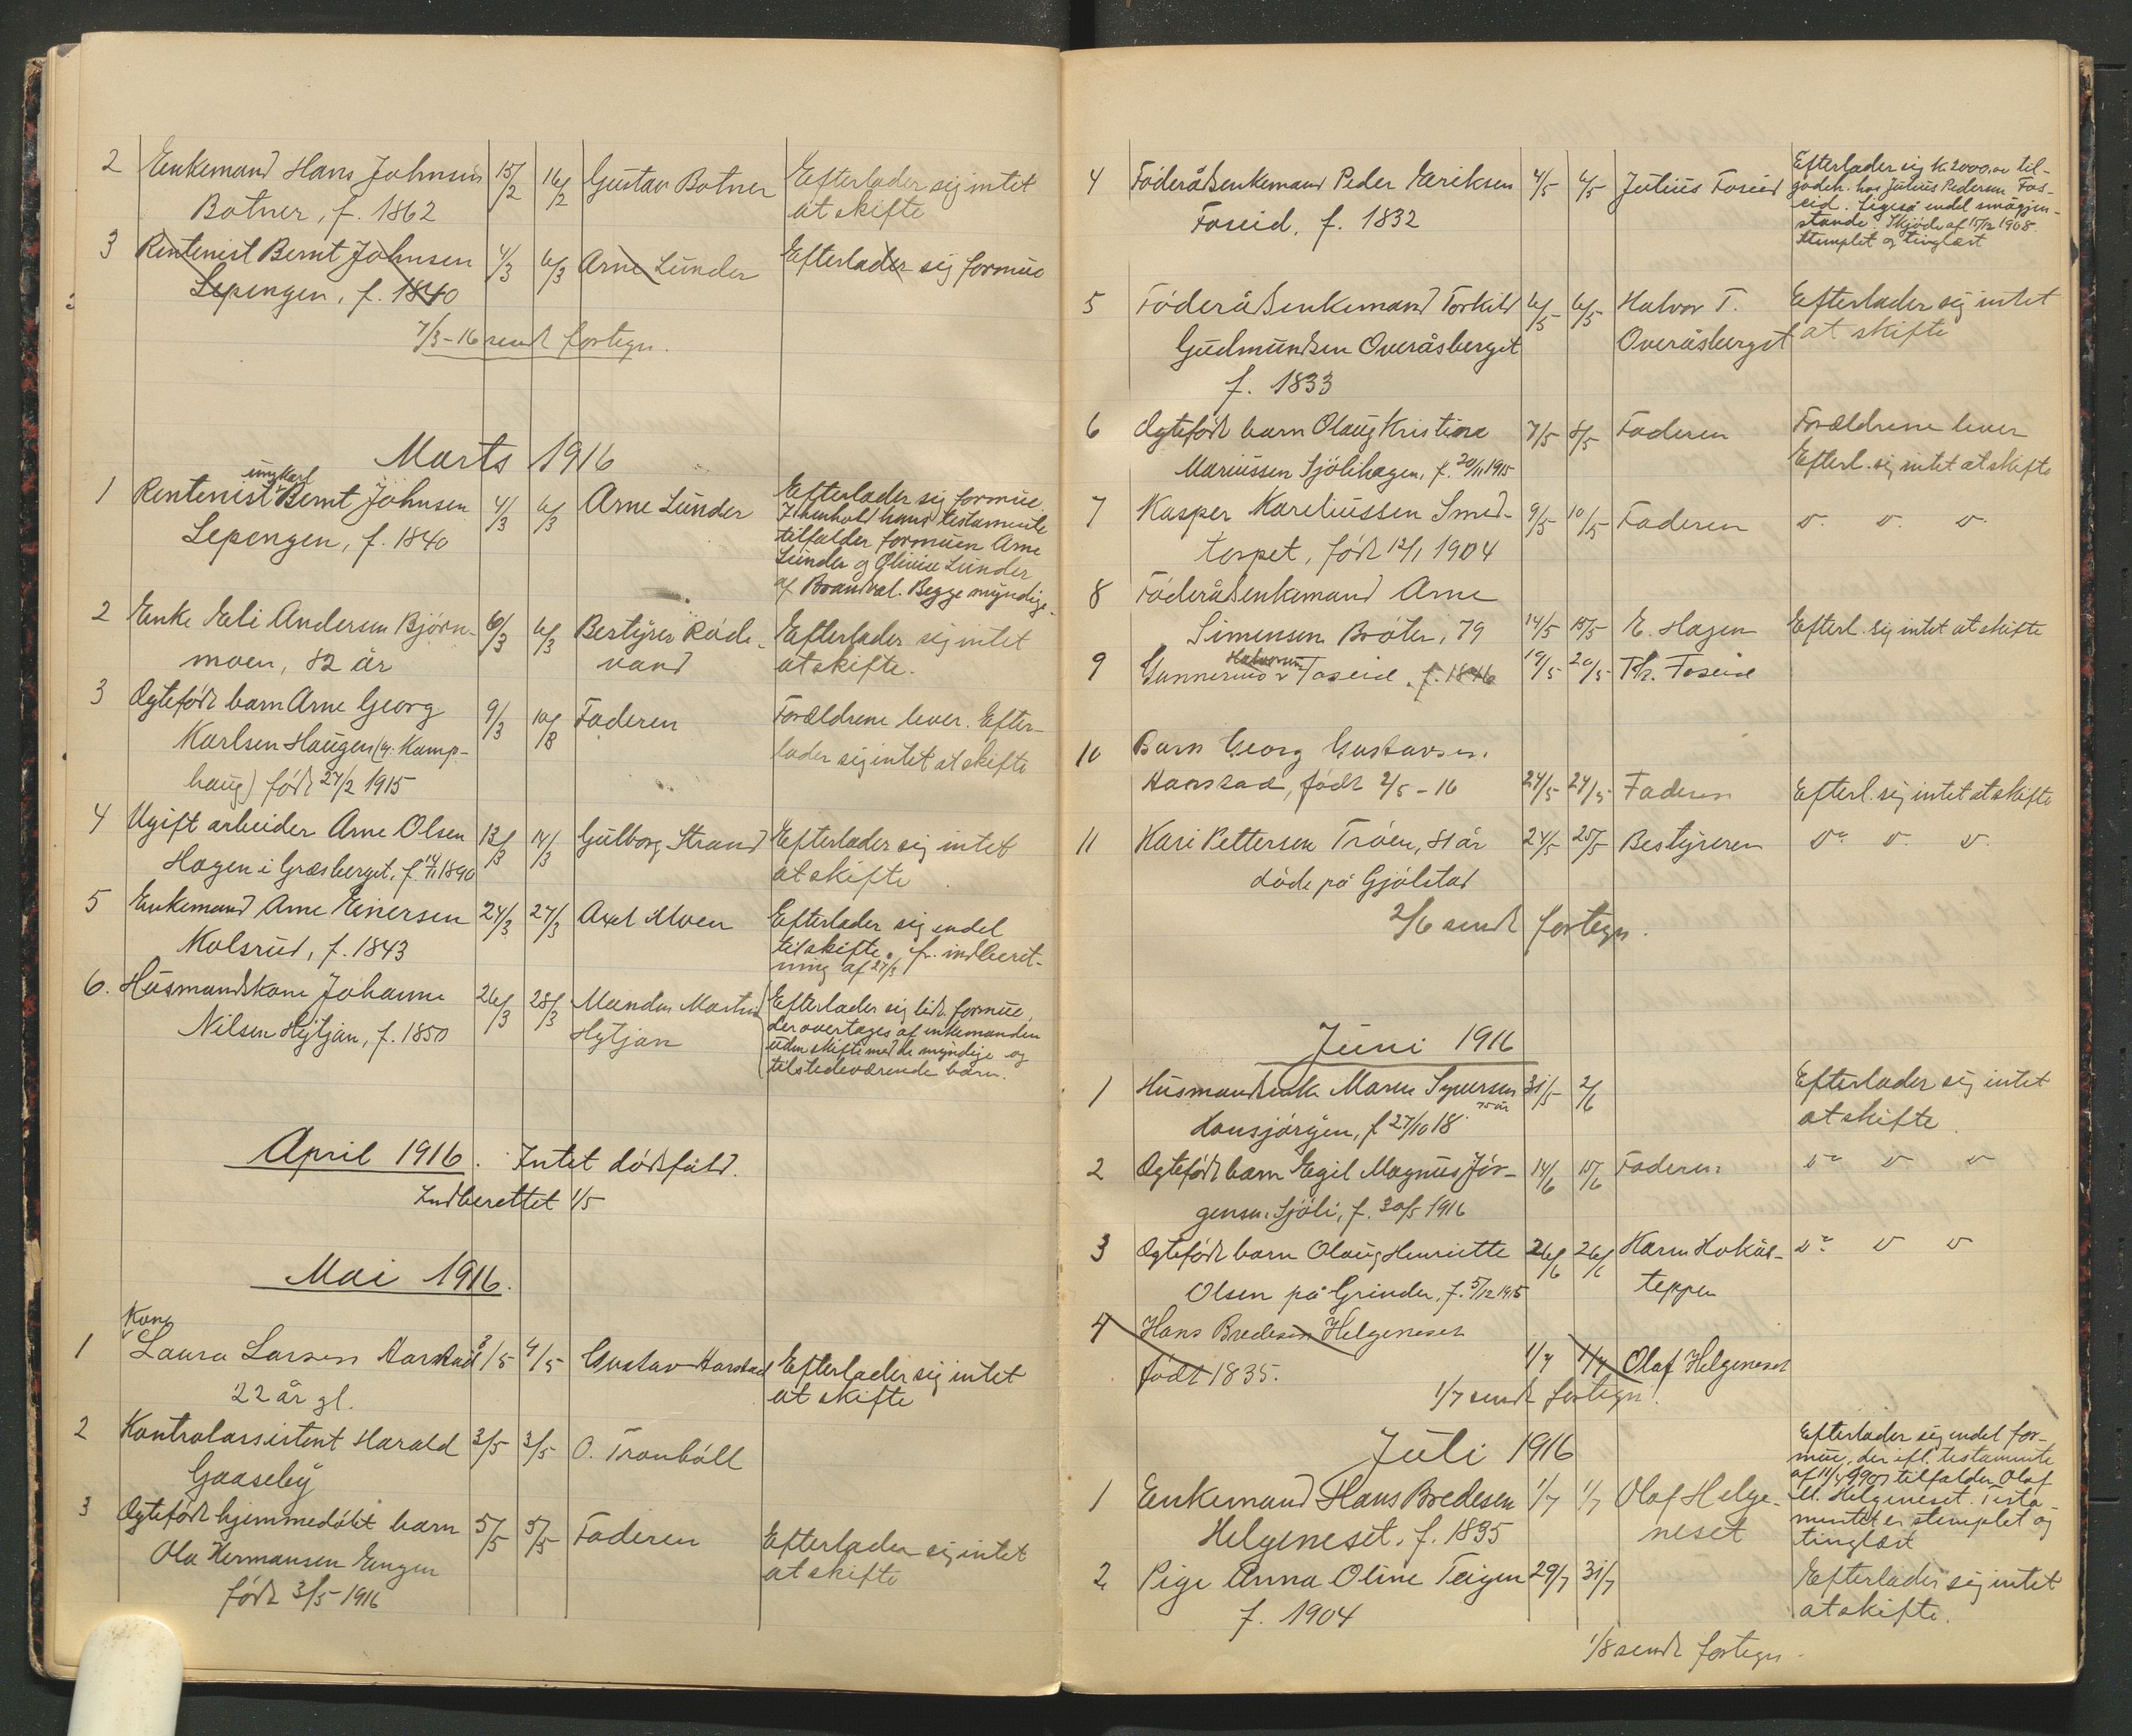 2 Enkemand Hans Johnsen 15/2 16/2 Gustav Botner Efterlader sig intet
Botner, f. 1862 at skifte
3 Rentenist Bernt Johnsen 4/3 6/3 Arne Lunder Efterlader sig formue
Lepengen, f. 1840
7/3-16 sendt fortegn.
Marts 1916
ungkarl
1 Rentenist Bernt Johnsen 4/3 6/3 Arne Lunder Efterlader sig formue.
Lepengen, f. 1840 I henhold hans testamente
tilfalder formuen Arne
Lunder og Olivie Lunder
af Brandval. Begge myndige.
2 Enke Eli Andersen Bjørn- 6/3 6/3 Bestyrer Röde- Efterlader sig intet
moen, 82 år vand at skifte.
3 Ægtefödt barn Arne Georg 9/3 10/8 Faderen Forældrene lever. Efter-
Karlsen Haugen (y. Kamp- lader sig intet at skifte
haug) födt 27/2 1915
4 Ugift arbeider Arne Olsen 13/3 14/3 Gulborg Strand Efterlader sig intet
Hagen i Græsberget, f. 1890 at skifte
5 Enkemand Arne Einersen 24/3 27/3 Axel Moen Efterlader sig endel
Kolsrud, f. 1843 til skifte, jfr. indberet-
ning af 27/3
6. Husmandskone Johanne 26/3 28/3 Mandus Martin Efterlader sig lidt formue,
Nilsen Hytjan, f. 1850 Hytjan der overtages af enkemanden
uden skifte med de myndige og
tilstedeværende barn.
April 1916. Intet dödsfald.
Indberettet 1/5
Mai 1916.
Kone
1 Laura Larsen Harstad 3/5 4/5 Gustav Harstad Efterlader sig intet
22 år gl. at skifte
2 Kontrolassistent Harald 3/5 3/5 O. Tronböll
Gaaseby
3 Ægtefödt hjemmedöbt barn 5/5 5/5 Faderen Efterlader sig intet
Ola Hermansen Engen at skifte
födt 3/5-1916
4 Föderådsenkemand Peder Eriksen 4/5 6/5 Julius Foseid Efterlader sig k 2000,00 til-
Foseid, f. 1832 godeh. hos Julius Pedersen Fos-
eid. Ligeså endel smågjen-
stande. Skjöde af 15/12 1908.
Stemplet og tinglæst
5 Föderådsenkemand Torkild 6/5 6/5 Halvor T. Efterlader sig intet
Gudmundsen Overåsberget Overåsberget at skifte
f. 1833
6 Ægtefödt barn Olaug Kristiora 7/5 8/5 Faderen Forældrene lever
Mariussen Sjölihagen, f. 20/11 1915 Efterl. sig intet at skifte
7 Kasper Kareliussen Smed- 9/5 10/5 Faderen v. v. v.
torpet, födt 12/1 1904
8 Föderådsenkemand Arne
Simensen Bröten, 79 14/5 15/5 E. Hagen Efterl. sig intet at skifte
Halvorsen
9 Gunnerius Foseid, f. 1846 19/5 20/5 Th. Foseid
10 Barn Georg Gustavsen
Harstad, födt 2/5-16 24/5 27/5 Faderen Efterl. sig intet at skifte
11 Kari Pettersen Tröen, 81 år 24/5 25/5 Bestyreren v. v. v.
döde på Gjölstad
2/6 sendt fortegn.
Juni 1916
1 Husmandsenk. Maren Syversen 31/5 2/6 Efterlader sig intet
75 år
Hansjörgen, f 27/10 18 at skifte
2 Ægtefödt barn Egil Magnus Jör- 14/6 15/6 Faderen v. v v
gensen Sjöli, f. 30/5 1916
3 Ægtefödt barn Olaug Henriette 26/6 26/6 Karen Hokås- v. v v
Olsen på Grinder, f. 5/12 1915 teppen
4 Hans Bredesen Helgeneset
födt 1835. 1/7 1/7 Olaf Helgeneset
1/7 sendt fortegn.
Juli 1916
1 Enkemand Hans Bredesen 1/7 1/7 Olaf Helge- Efterlader sig endel for-
Helgeneset, f. 1835 neset mue, der efl. testamente
af 11/4 1907 tilfalder Olaf
M. Helgeneset. Testa-
mentet er stemplet og
tinglæst
2 Pige Anna Oline Teigen 29/7 31/7 Efterlader sig intet
f. 1904 at skifte.
1/8 sendt fortegn.